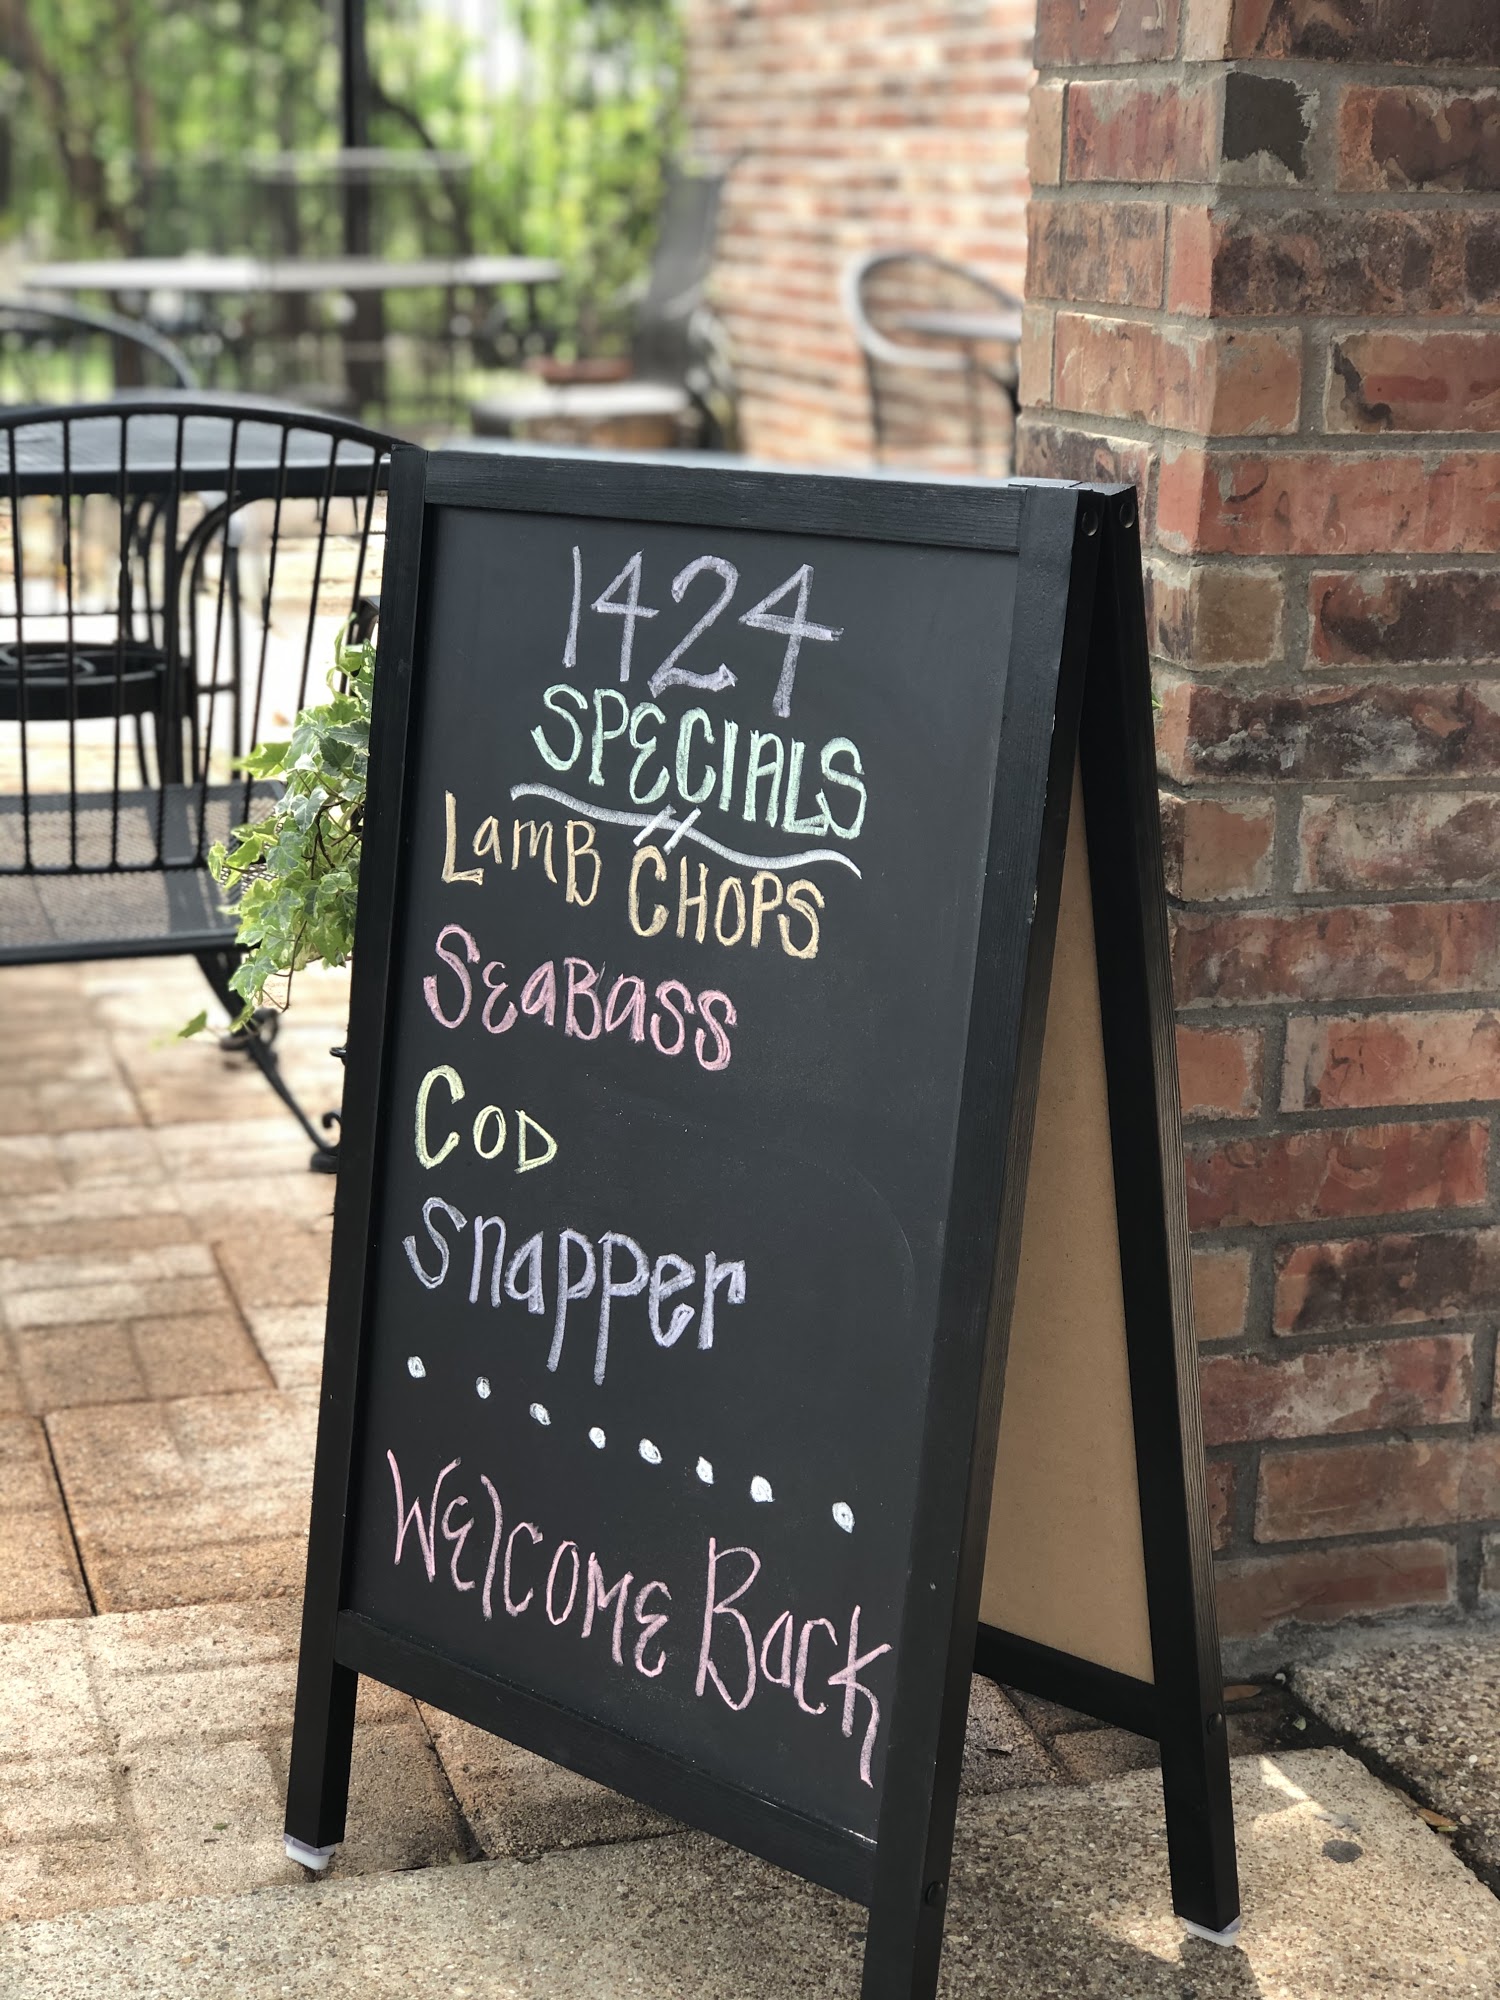 1424
SPECIALS
LamB CHOPS
SeaBass
COD
Snapper
WelCOMe Back